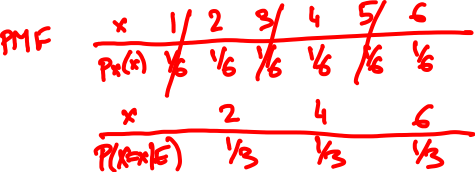 PMF x 1 2 3 4 5 6
Px(x) 1/6 1/6 1/6 1/6 1/6 1/6
x 2 4 6
P(X=x|E) 1/3 1/3 1/3